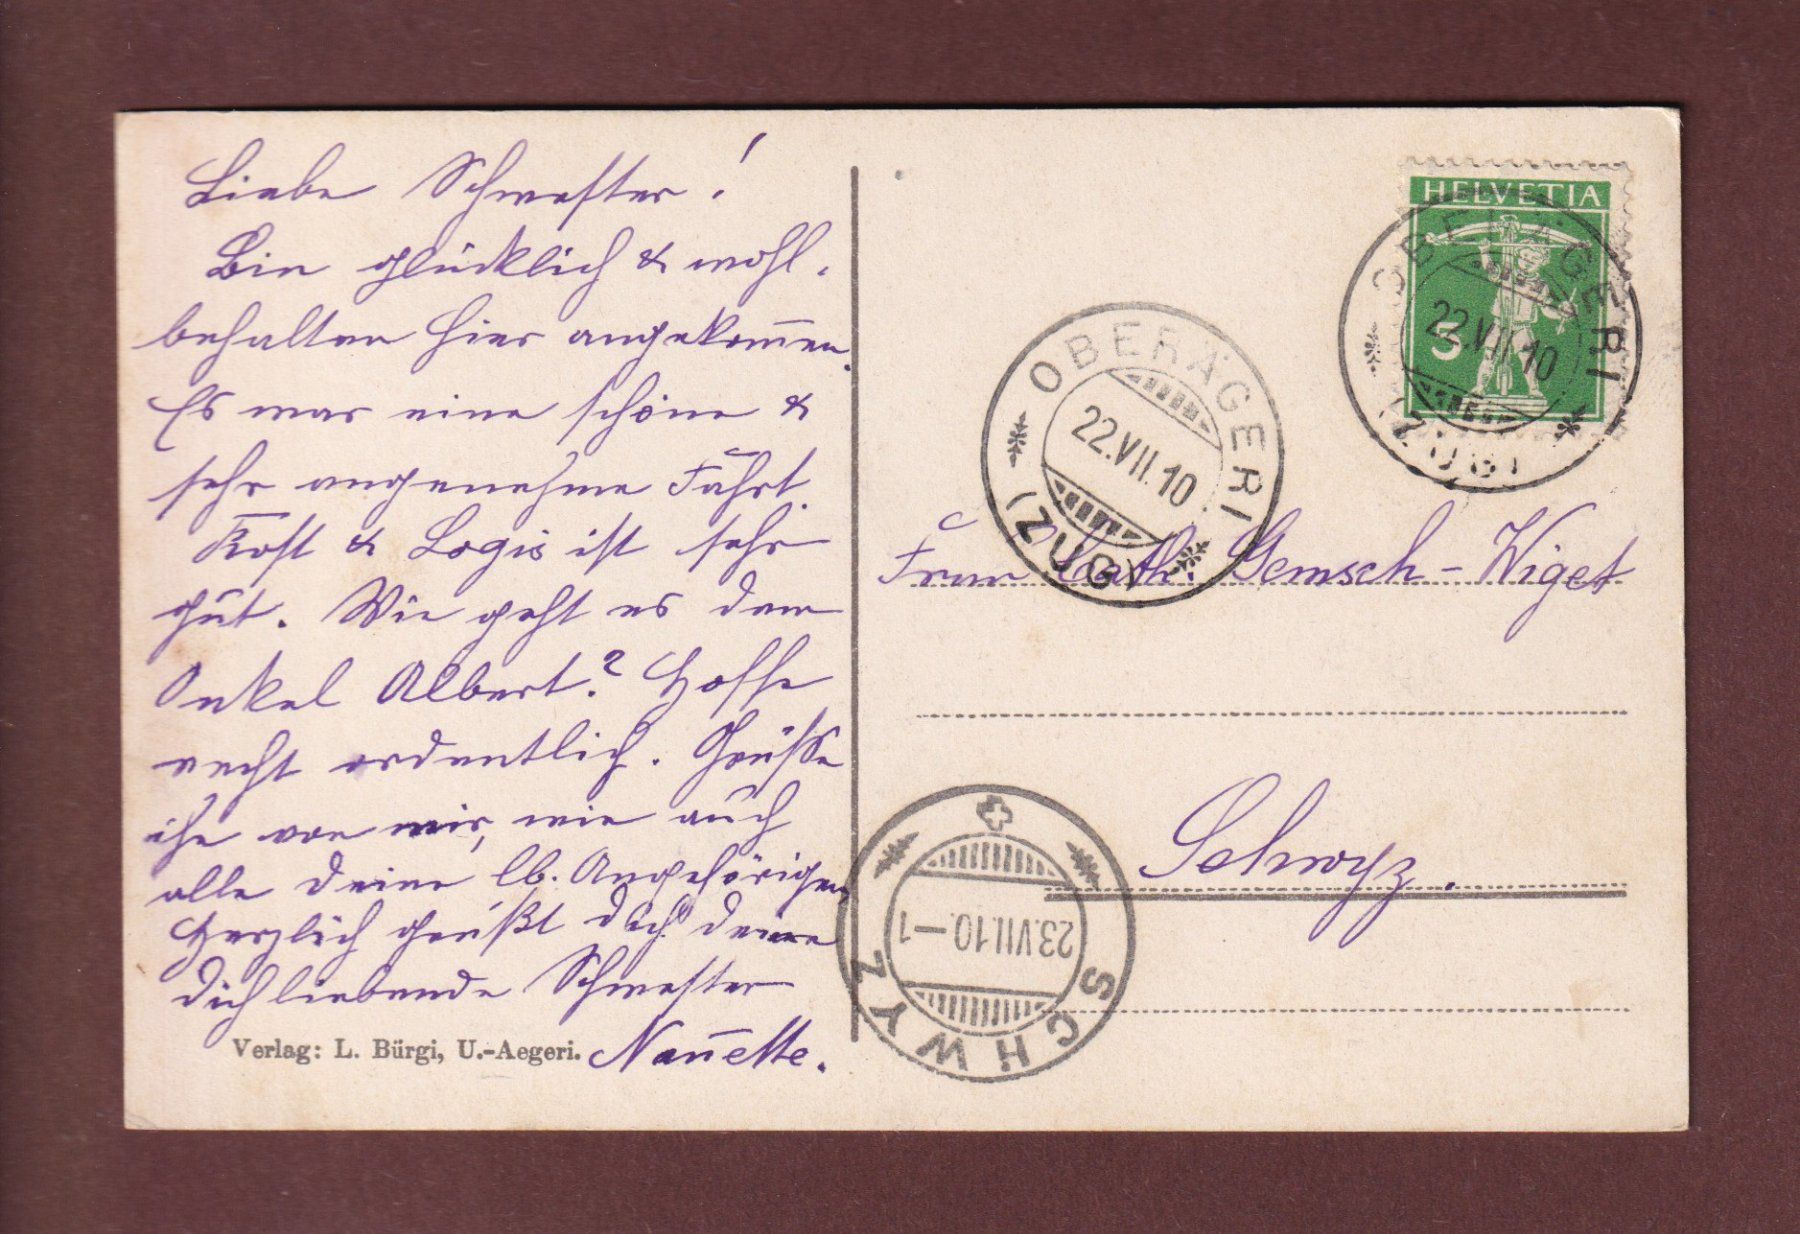 Liebe Schwester!
Bin glücklich & wohl-
behalten hier angekom̅en.
Es war eine schöne &
sehr angenehme Fahrt.
Kost & Logis ist sehr
gut. Wie geht es dem
Onkel Albert? Hoffe
recht ordentlich. Grüsse
ihn von mir, wie auch
alle Deine lb. Angehörigen
Herzlich grüßt Dich deine
Dich liebende Schwester
Nan̅ette.
Verlag: L. Bürgi, U.-Aegeri.
HELVETIA
5
OBERÄGERI
22.VII.10
(ZUG)
OBERÄGERI
22.VII.10
(ZUG)
Frau Cath. Gemsch-Wiget
Schwyz.
SCHWYZ
23.VII.10-1